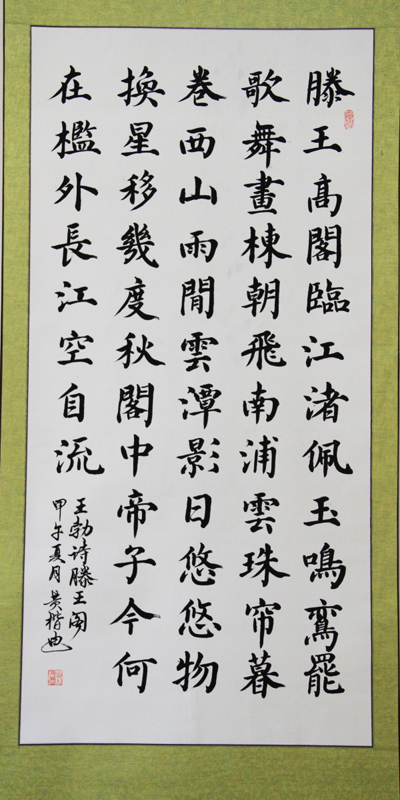 滕王高閣臨江渚佩玉鳴鸞罷
歌舞畫棟朝飛南浦雲珠帘暮
卷西山雨閒雲潭影日悠悠物
換星移幾度秋閣中帝子今何
在檻外長江空自流
王勃诗滕王阁
甲午夏月 吴楷也